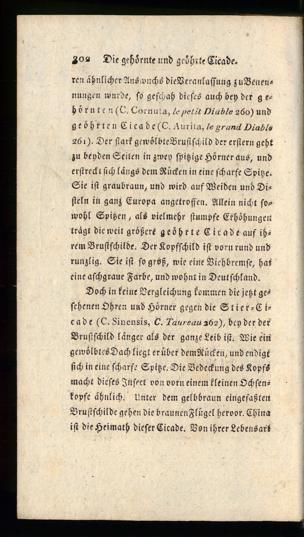 202 Die gehörnte und geöhrte Cicade.
ren ähnlicher Auswuchs die Veranlassung zu Benen-
nungen wurde, so geschah dieses auch bey der ge-
hörnten (C. Cornuta, le petit Diable 260) und
geöhrten Cicade (C. Aurita, le grand Diable
261). Der stark gewölbte Brustschild der erstern geht
zu beyden Seiten in zwey spitzige Hörner aus, und
erstreckt sich längs dem Rücken in eine scharfe Spitze.
Sie ist graubraun, und wird auf Weiden und Di-
steln in ganz Europa angetroffen. Allein nicht so-
wohl Spitzen, als vielmehr stumpfe Erhöhungen
trägt die weit größere geöhrte Cicade auf ih-
rem Brustschilde. Der Kopfschild ist vorn rund und
runzlig. Sie ist so groß, wie eine Viehbremse, hat
eine aschgraue Farbe, und wohnt in Deutschland.
Doch in keine Vergleichung kommen die jetzt ge-
sehenen Ohren und Hörner gegen die Stier-Ci-
cade (C. Sinensis, C. Taureau 262), bey der der
Brustschild länger als der ganze Leib ist. Wie ein
gewölbtes Dach liegt er über dem Rücken, und endigt
sich in eine scharfe Spitze. Die Bedeckung des Kopfs
macht dieses Insect von vorn einem kleinen Ochsen-
kopfe ähnlich. Unter dem gelbbraun eingefaßten
Brustschilde gehen die braunen Flügel hervor. China
ist die Heimath dieser Cicade. Von ihrer Lebensart